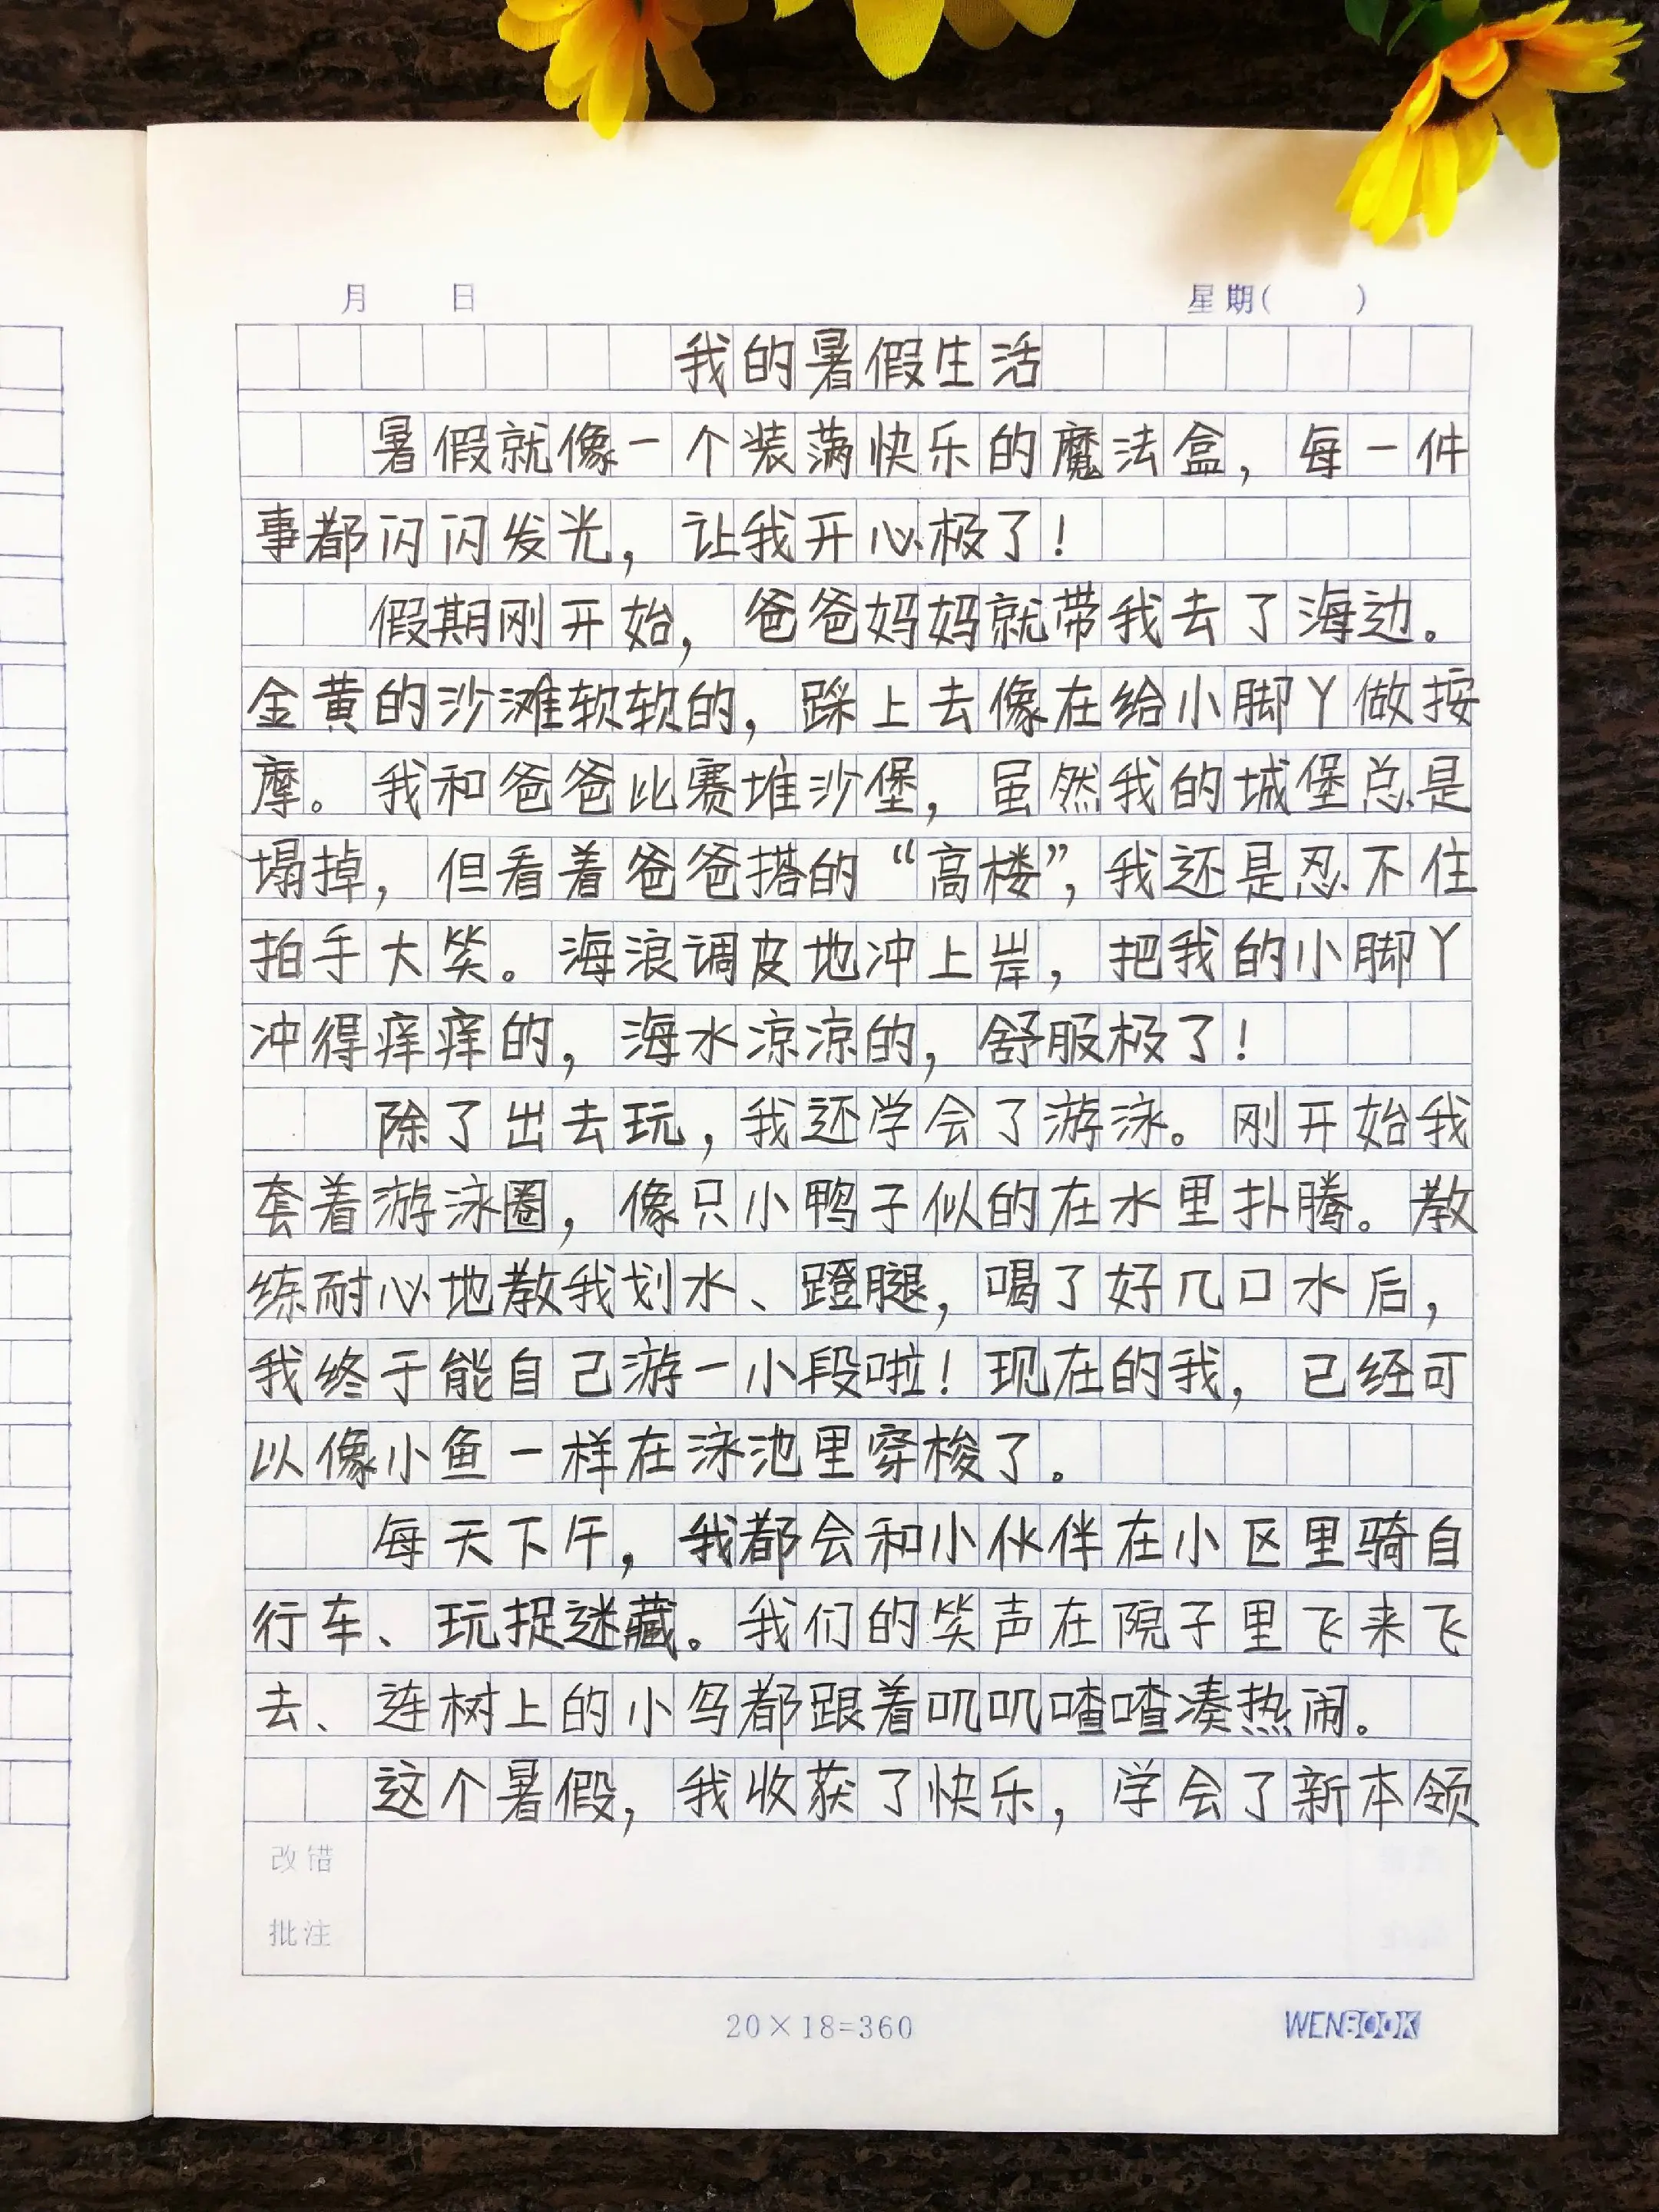 月 日 星期( )
我的暑假生活
暑假就像一个装满快乐的魔法盒，每一件
事都闪闪发光，让我开心极了！
假期刚开始，爸爸妈妈就带我去了海边。
金黄的沙滩软软的，踩上去像在给小脚丫做按
摩。我和爸爸比赛堆沙堡，虽然我的城堡总是
塌掉，但看着爸爸搭的“高楼”，我还是忍不住
拍手大笑。海浪调皮地冲上岸，把我的小脚丫
冲得痒痒的，海水凉凉的，舒服极了！
除了出去玩，我还学会了游泳。刚开始我
套着游泳圈，像只小鸭子似的在水里扑腾。教
练耐心地教我划水、蹬腿，喝了好几口水后，
我终于能自己游一小段啦！现在的我，已经可
以像小鱼一样在泳池里穿梭了。
每天下午，我都会和小伙伴在小区里骑自
行车、玩捉谜藏。我们的笑声在院子里飞来飞
去、连树上的小鸟都跟着叽叽喳喳凑热闹。
这个暑假，我收获了快乐，学会了新本领
改错
批注
20×18=360
WENBOOK